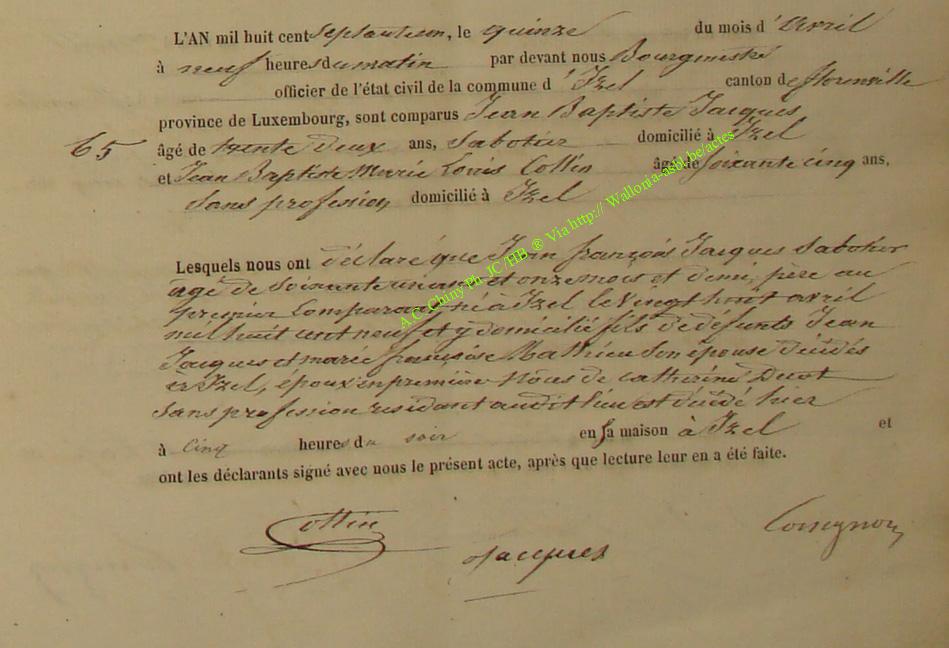 L'AN mil huit cent Septante cinq, le quinze du mois d'Avril
à neuf heures du matin par devant nous Bourgmestre
officier de l'état civil de la commune d'Izel canton de florenville
province de Luxembourg, sont comparus Jean Baptiste Jacques
65 âgé de trente deux ans, Sabotier domicilié à Izel
et Jean Baptiste Marie Louis Collin âgé de soixante cinq ans,
Sans profession, domicilié à Izel
Lesquels nous ont déclaré que Jean françois Jacques Sabotier
agé de Soixante cinq ans et onze mois et demi, père au
premier Comparant né à Izel le vingt huit avril
mil huit cent neuf et y domicilié fils de défunts Jean
Jacques et marie françoise Mathieu Son épouse décédés
à Izel, époux en première Nôces de Catherine
Sans profession residant audit lieu est décédé hier
à Cinq heures du soir en sa maison à Izel et
ont les déclarants signé avec nous le présent acte, après que lecture leur en a été faite.
Collin Jacques
A.C. Chiny Ph. JC/HB ® Via http:// Wallonia-asbl.be/actes